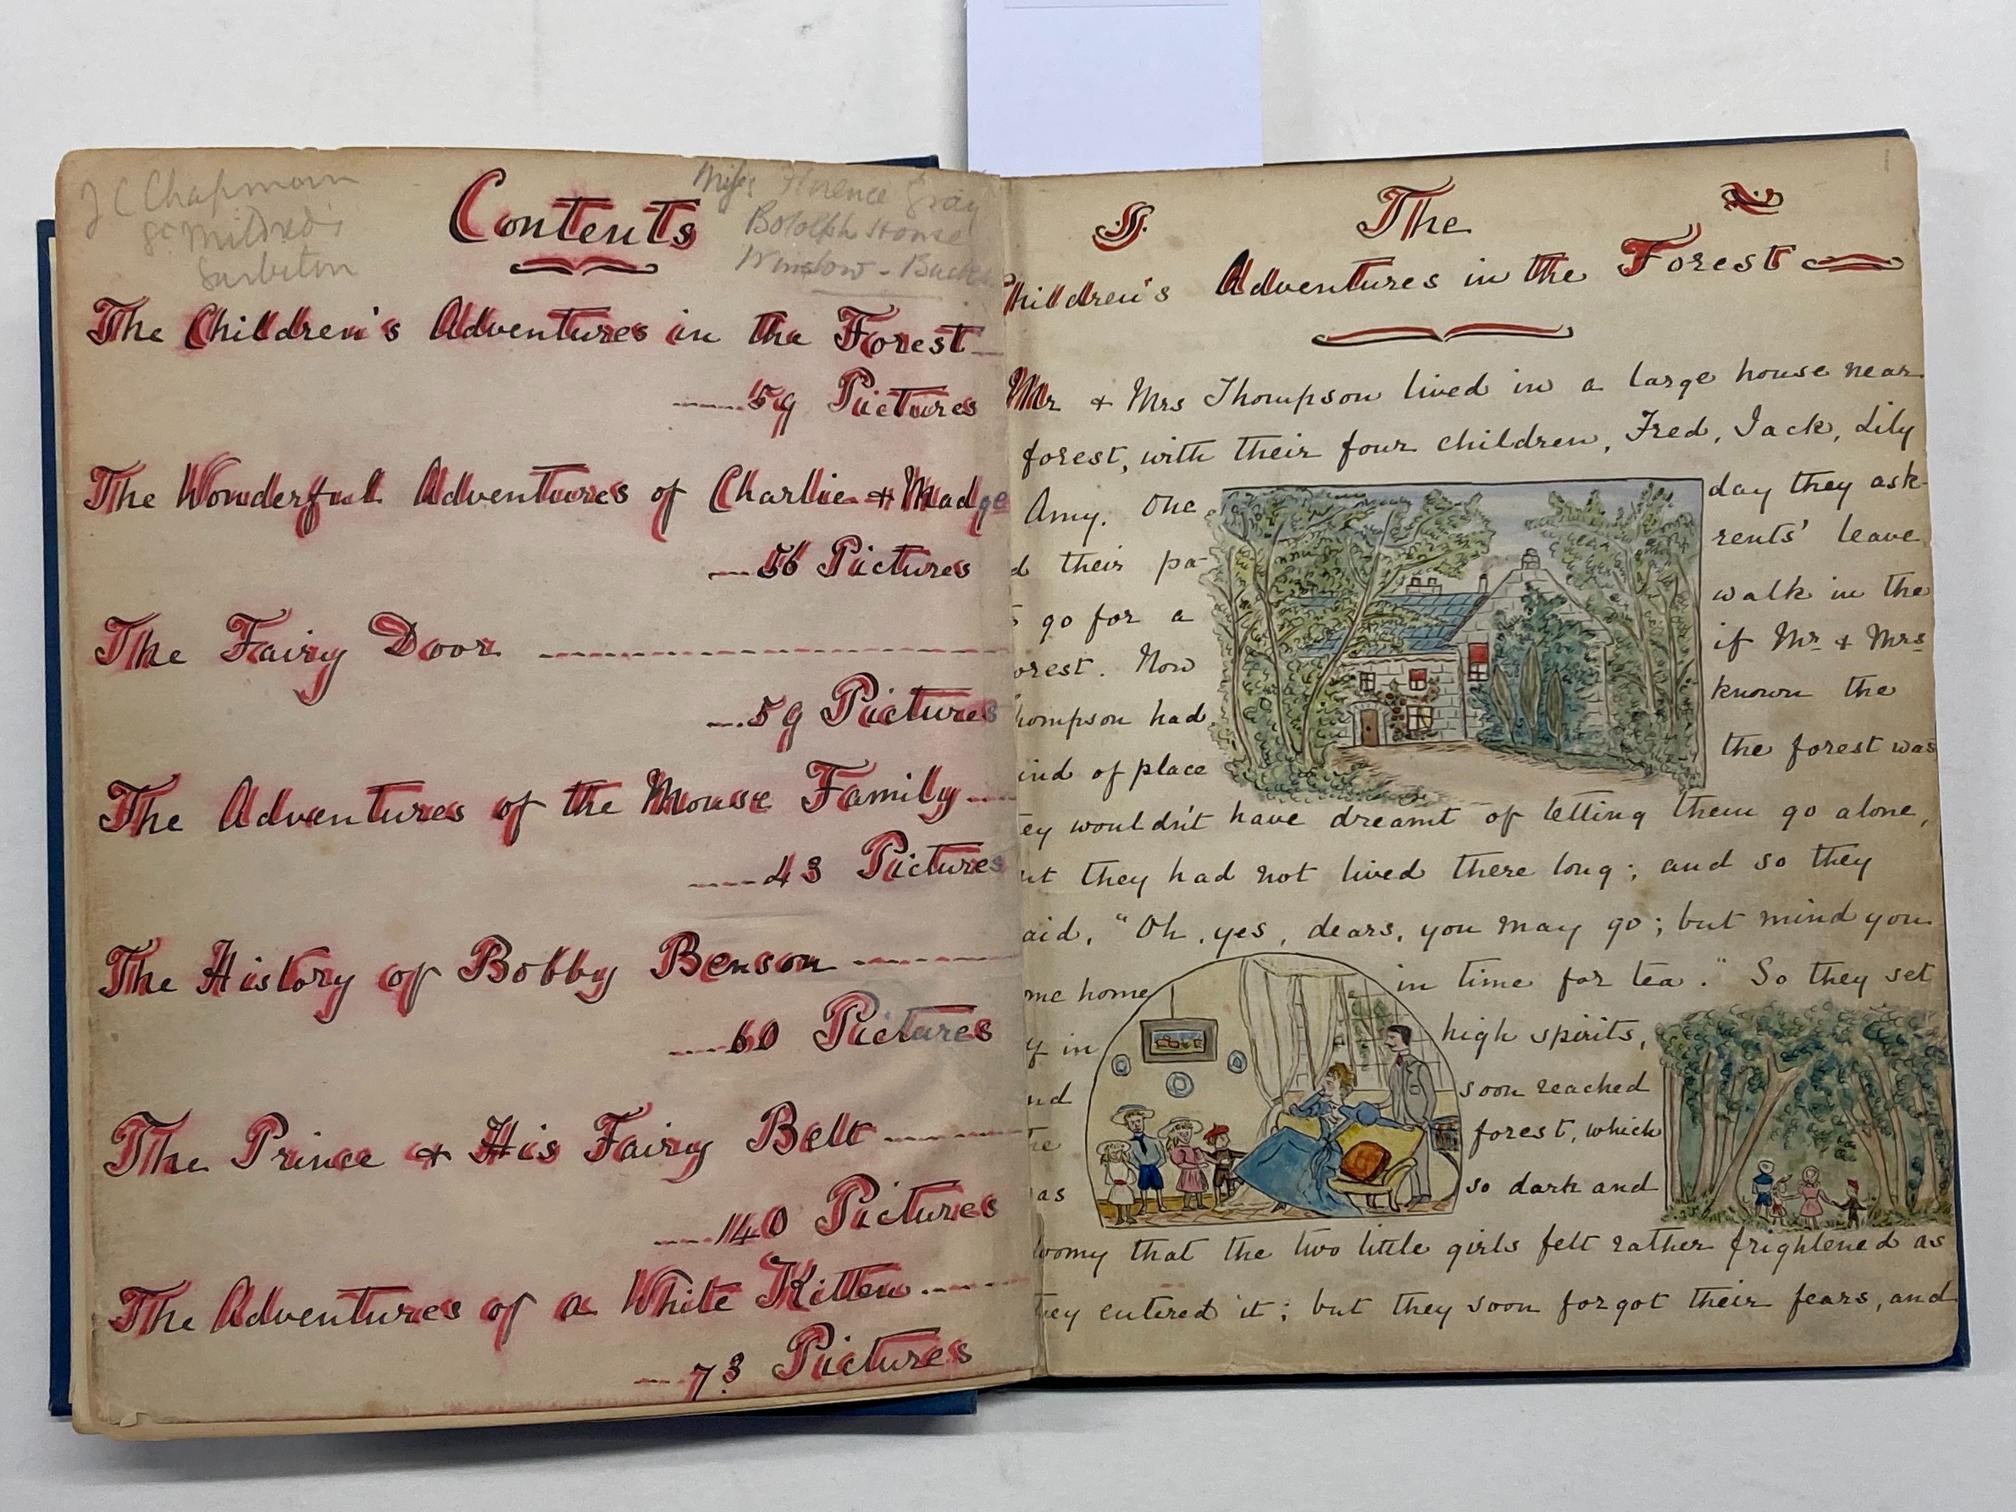 J C Chapman
St Mildred's
Surbiton
Miss Florence Gray
Botolph House
Winslow - Bucks
Contents
The Children's Adventures in the Forest
59 Pictures
The Wonderful Adventures of Charlie & Madge
56 Pictures
The Fairy Door
59 Pictures
The Adventures of the Mouse Family
43 Pictures
The History of Bobby Benson
60 Pictures
The Prince & His Fairy Belt
140 Pictures
The Adventures of a White Kitten
73 Pictures
1
The
Children's Adventures in the Forest
Mr & Mrs Thompson lived in a large house near
forest, with their four children, Fred, Jack, Lily
Amy. One day they ask-
d their pa- rents' leave
go for a walk in the
orest. Now if Mr & Mrs
hompson had known the
ind of place the forest was
ey wouldn't have dreamt of letting them go alone,
ut they had not lived there long; and so they
aid, "Oh, yes, dears, you may go; but mind you
me home in time for tea." So they set
ff in high spirits,
nd soon reached
he forest, which
as so dark and
loomy that the two little girls felt rather frightened as
hey entered it; but they soon forgot their fears, and